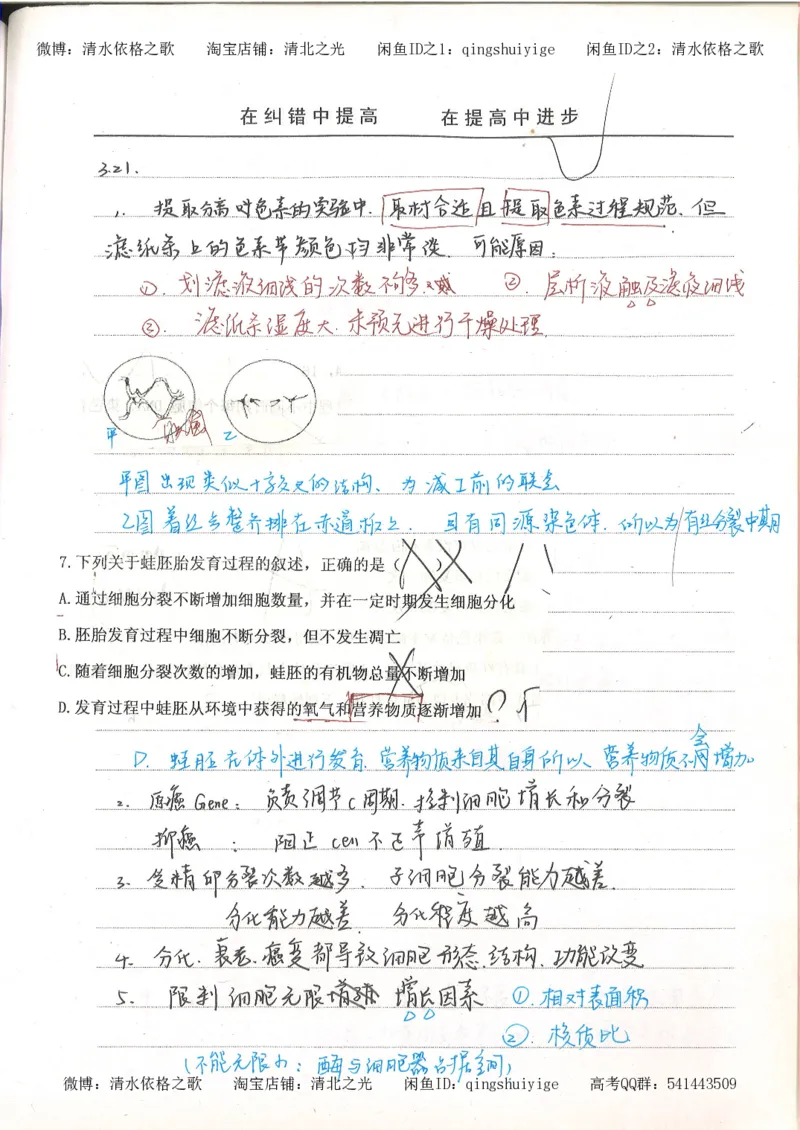 微博：清水依格之歌 淘宝店铺：清北之光 闲鱼ID之1：qingshuiyige 闲鱼ID之2：清水依格之歌
在纠错中提高 在提高中进步
3.21.
1. 提取分离叶色素的实验中，取材合适且提取色素过程规范，但
滤纸条上的色素带颜色均非常浅，可能原因：
①. 划滤液细线的次数不够多 ②. 层析液触及滤液细线
③. 滤纸条湿度大，未预先进行干燥处理
甲 乙
甲图出现类似十字交叉的结构、为减I前的联会
乙图着丝点整齐排在赤道板上，且有同源染色体，所以为有丝分裂中期
7.下列关于蛙胚胎发育过程的叙述，正确的是（ ）
A.通过细胞分裂不断增加细胞数量，并在一定时期发生细胞分化
B.胚胎发育过程中细胞不断分裂，但不发生凋亡
C.随着细胞分裂次数的增加，蛙胚的有机物总量不断增加
D.发育过程中蛙胚从环境中获得的氧气和营养物质逐渐增加 ?
D. 蛙胚在体外进行发育，营养物质来自其自身所以营养物质不会增加
2. 原癌Gene：负责调节C周期，控制细胞增长和分裂
抑癌：阻止cell不正常增殖
3. 受精卵分裂次数越多，子细胞分裂能力越差，
分化能力越差 分化程度越高
4. 分化、衰老、癌变都导致细胞形态、结构、功能改变
5. 限制细胞无限增长因素 ①. 相对表面积
②. 核质比
（不能无限小：酶与细胞器占据空间）
微博：清水依格之歌 淘宝店铺：清北之光 闲鱼ID：qingshuiyige 高考QQ群：541443509